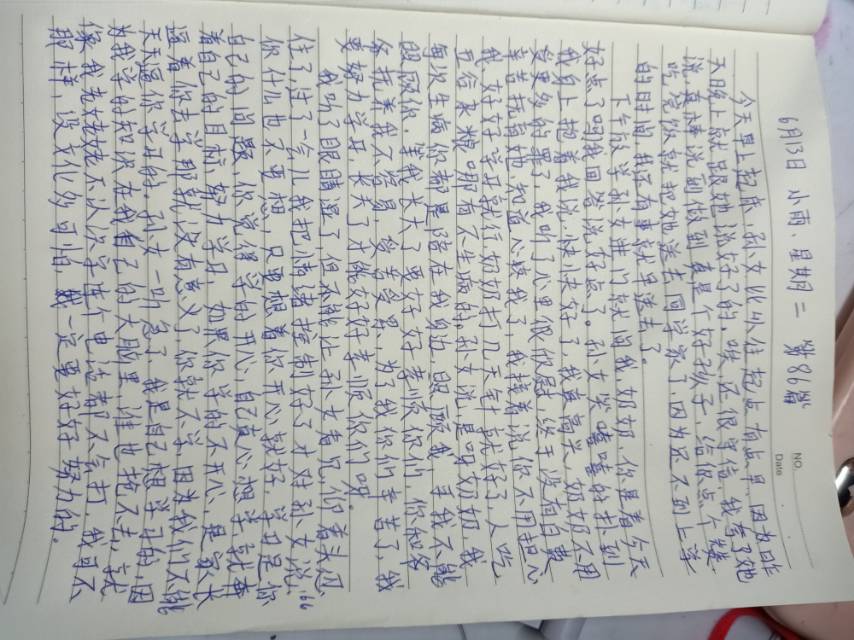 NO.
Date
6月13日 小雨.星期二 第86篇
今天早上起来,孙女比以往起点有点早,因为昨
天晚上就跟她说好了的,唉,还很守信,我夸了她
说,真棒说到做到,真是个好孩子,给你点个赞
吃完饭就把她送去同学家了,因为还不到上学
的时间,我还有事就早送去了。
下午放学孙女进门就问我,奶奶,你是看今天
好点了吗我回答说,好点了。孙女笑嘻嘻的扑到
我身上抱着我说,快快好了,我真高兴,奶奶不用
受更多的罪了,我听了心里很欣慰,终于没有白费
辛苦抚育她,知道心疼我了,我接着说你不用担心
我,好好学习就行奶奶打几天针就好了,人吃
五谷杂粮哪有不生病的。孙女说,是呀奶奶,我
每次生病你都是陪在我身边照顾我,
照顾你,等我长大了更好好孝顺你们,你和爷
爷抚养我不容易,为了我你们辛苦了我
要努力学习,长大了才能好好孝顺你们呀。
我听了眼睛湿了但不能让孙女看见,仰着头忍
住了,过了一会儿我把情绪控制好了才对孙女说,“
你什么也不要想,只要想着你开心就好,学习是你
自己的问题,你觉得学的开心,自己真心想学,就奔
着自己的目标,努力学习,如果你学的不开心,是家长
逼着你去学那就没有意义了,你就不学,因为我们不能
天天逼你学习的,孙女一听急了,我是自己想学习的,因
为我学的知识在我自己的大脑里,谁也抢不去,就
像我老姥姥不认识字连个电话都不会打,我可不
那样,没文化多可怕,我一定要好好努力的。